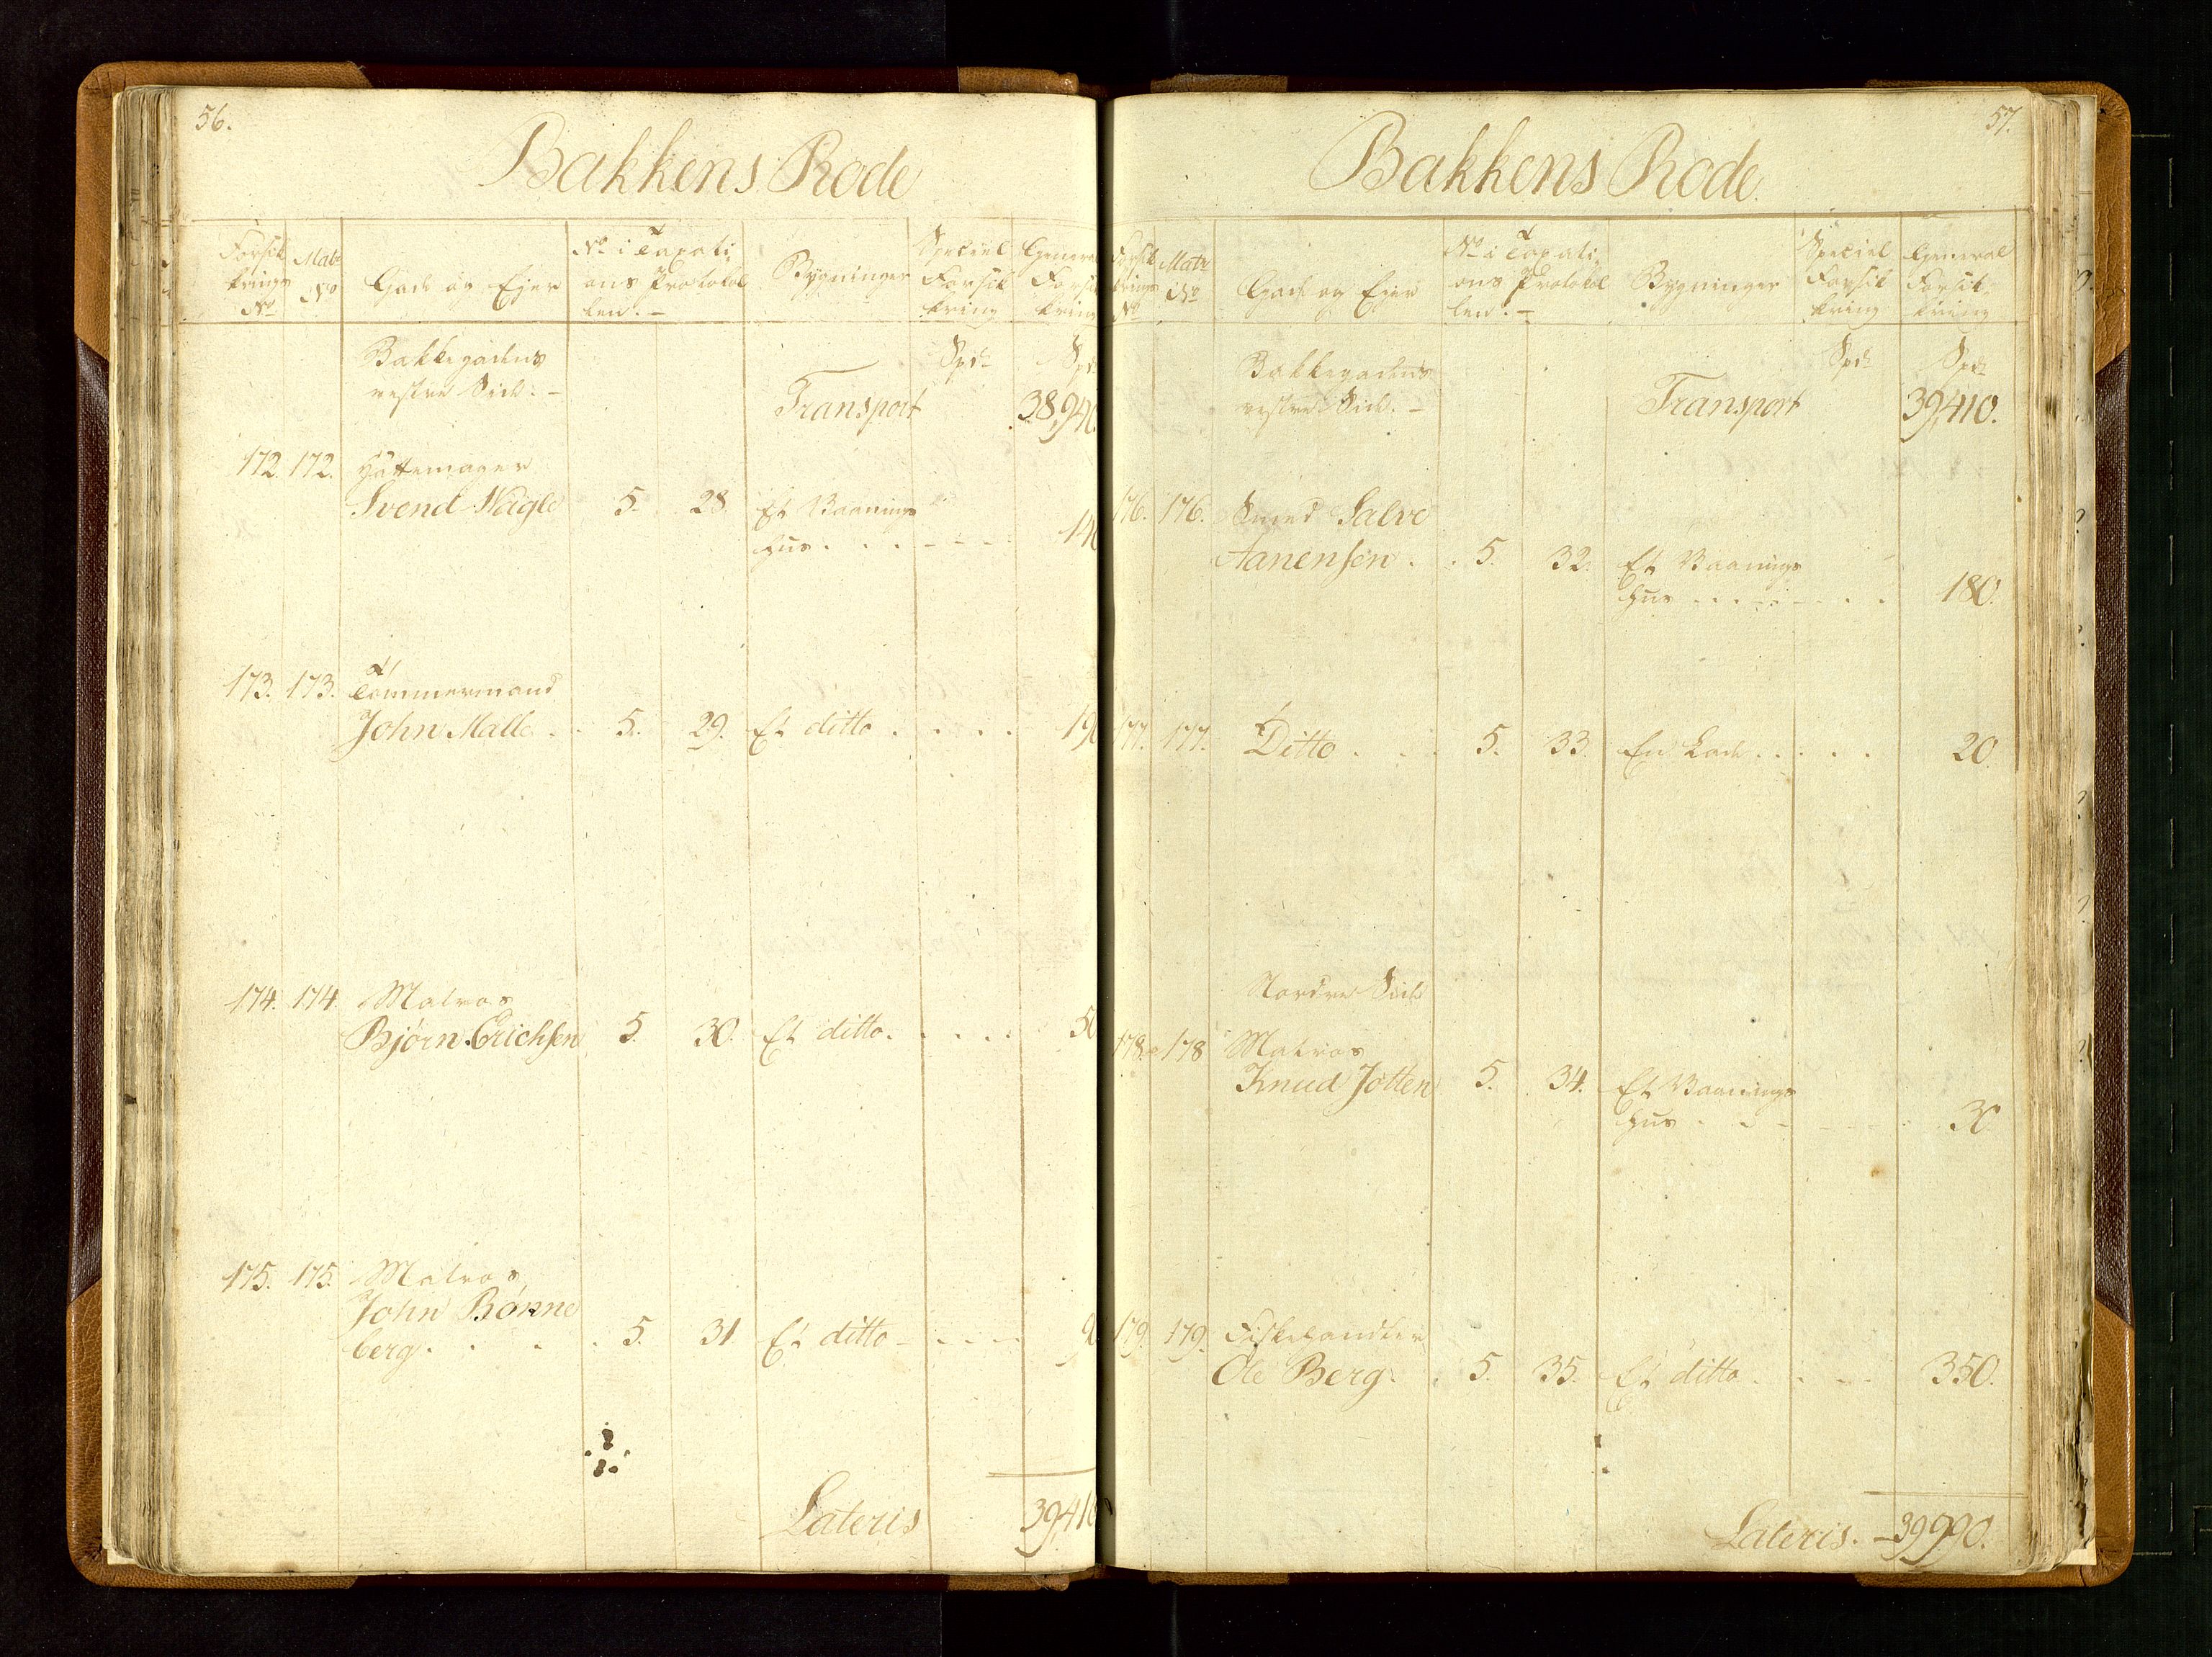 56.
Bakkens Rode
Forsik
krings
No
Matr
No
Gade og Ejer
No i Taxati
ons Protokol
len. -
Bygninger
Speciel
Forsik
kring
General
Forsik
kring
Bakkegadens
vestre Side. -
Spd.
Spd
Transport
38,940.
172. 172. Hattemager
Svend Nagle 5. 28. Et Vaanings
hus . . . - - - 140
173. 173. Tømmermand
John Malle . . 5. 29. Et ditto . . . . 190
174. 174. Matros
Bjørn Erichsen 5. 30. Et ditto. . . . . 50
175. 175. Matros
John Bønne
berg. . . . 5. 31 Et ditto - - - - 90
Lateris 39,410
57.
Bakkens Rode.
Forsik
krings
No
Matr
No
Gade og Ejer
No i Taxati
ons Protokol
len. -
Bygninger
Speciel
Forsik
kring
General
Forsik
kring
Bakkegadens
vestre Side. -
Spd.
Spd.
Transport
39,410.
176. 176. Smed Salve
Aanensen . . 5. 32. Et Vaanings
hus . . . . - . . 180.
177. 177. Ditto . . . 5. 33. En Lade . . . . 20.
Nordre Side
178. 178 Matros
Knud Jotten 5. 34. Et Vaanings
hus . . - - - . 30
179. 179. Fiskehandler
Ole Berg. . 5. 35. Et ditto . . - - 350.
Lateris. - 39990.